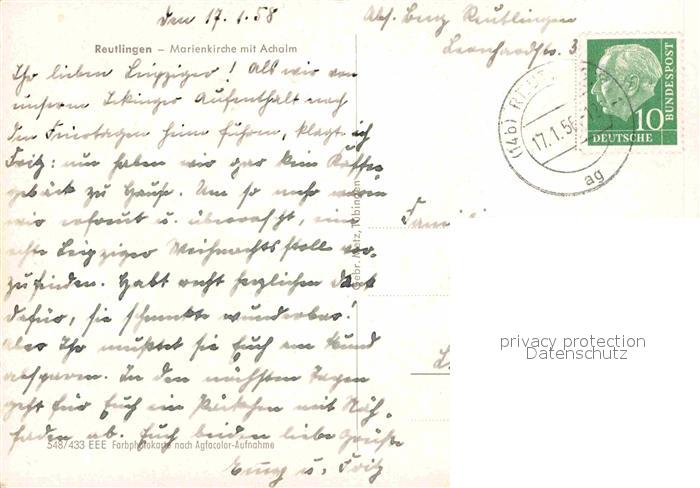 den 17.1.58
Abs. Benz Reutlingen
Leonhardstr. 3
Reutlingen – Marienkirche mit Achalm
Ihr lieben Leipziger! Als wir von
unserem Ickinger Aufenthalt nach
den Feiertagen heim fuhren, klagt ich
Fritz: nun haben wir gar kein Kaffee
gebäck zu Hause. Um so mehr waren
wir erfreut u. überrascht, eine
echte Leipziger Weihnachtsstolle vor-
zufinden. Habt recht herzlichen Dank
dafür, sie schmeckte wunderbar!
Aber Ihr musstet sie Euch am Mund
absparen. In den nächsten Tagen
geht für Euch ein Päckchen mit Näh-
faden ab. Euch beiden liebe Grüsse
u. Fritz
548/433 EEE Farbphotokarte nach Agfacolor-Aufnahme
Gebr. Metz, Tübingen
(14b) REUT
17.1.58
ag
10
DEUTSCHE
BUNDESPOST
Fami
privacy protection
Datenschutz